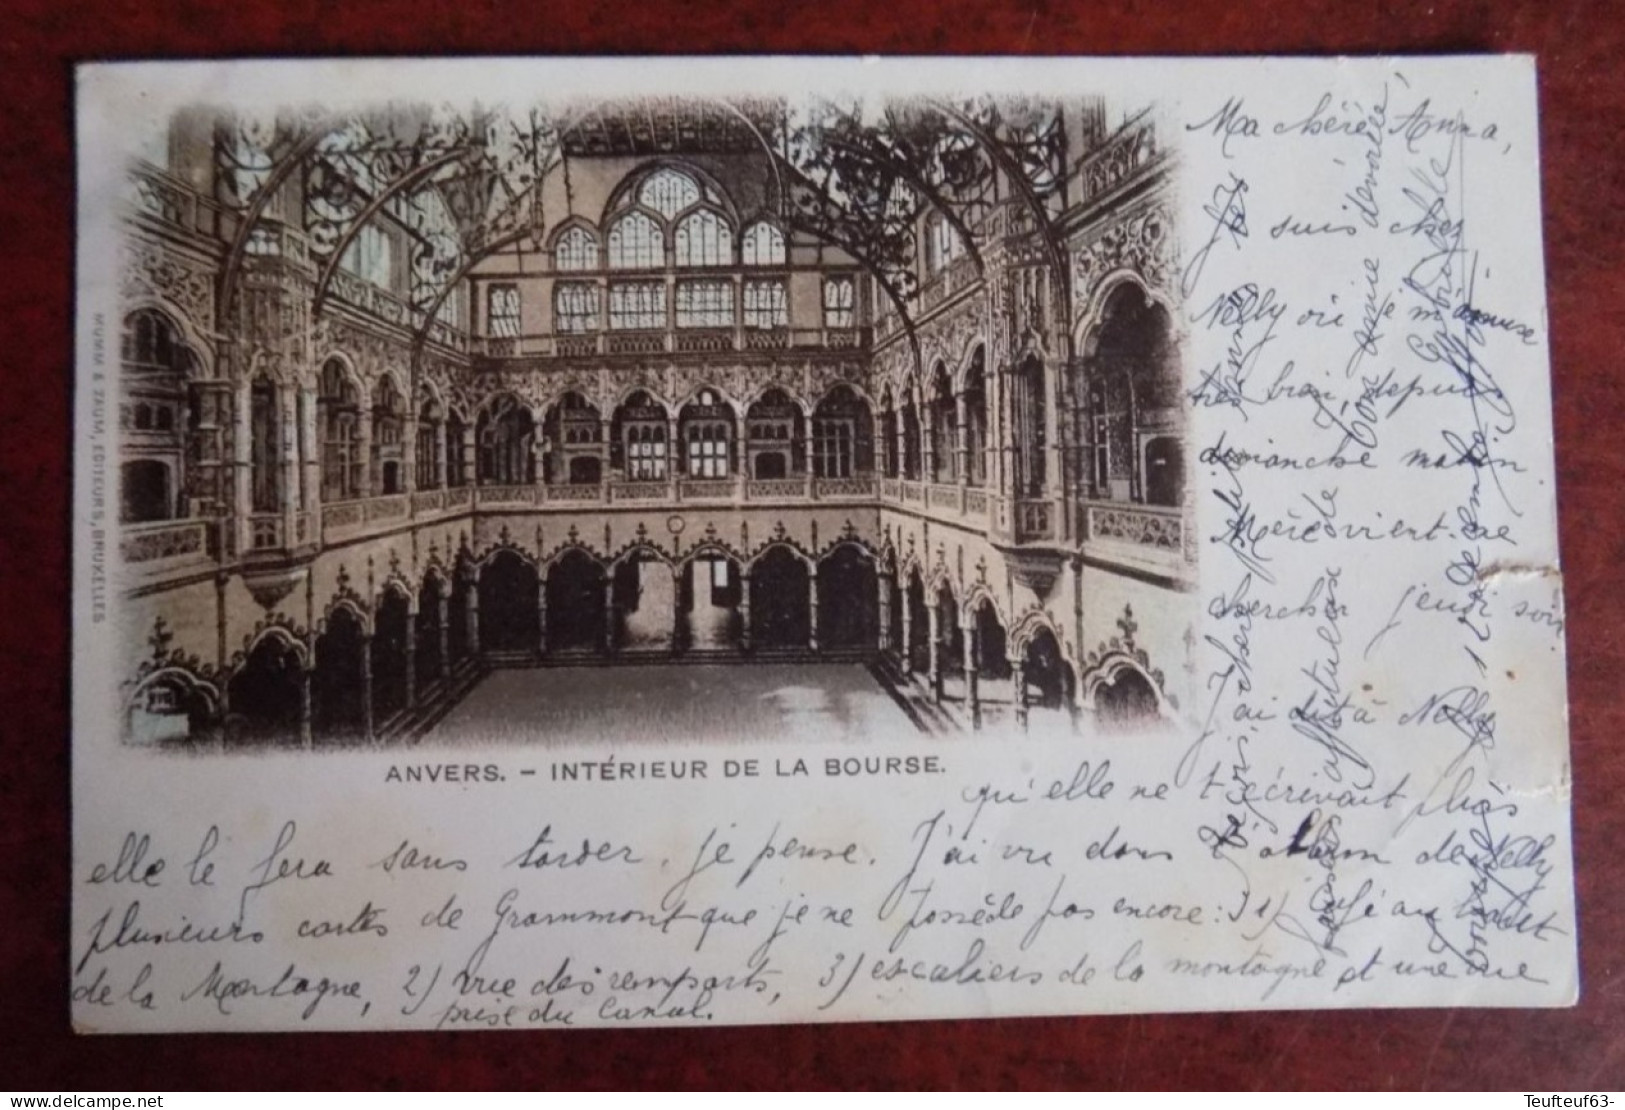 Ma chère Anna,
Je suis chez
Nelly où je m'amuse
très bien, depuis
dimanche matin
Mère vient me
chercher jeudi soir
J'ai dit à Nelly
qu'elle ne t'écrivait plus
elle le fera sans tarder, je pense. J'ai vu dans l'album de Nelly
plusieurs cartes de Grammont que je ne possède pas encore: 1) Café au haut
de la Montagne, 2) vue des remparts, 3) escaliers de la montagne et une vue
prise du Canal.
ANVERS. – INTÉRIEUR DE LA BOURSE.
MUMM & ZAUM, EDITEURS, BRUXELLES
Reçois, chère petite
affectueux
de Ton amie dévouée!
12 Décembre
Teufteuf63-